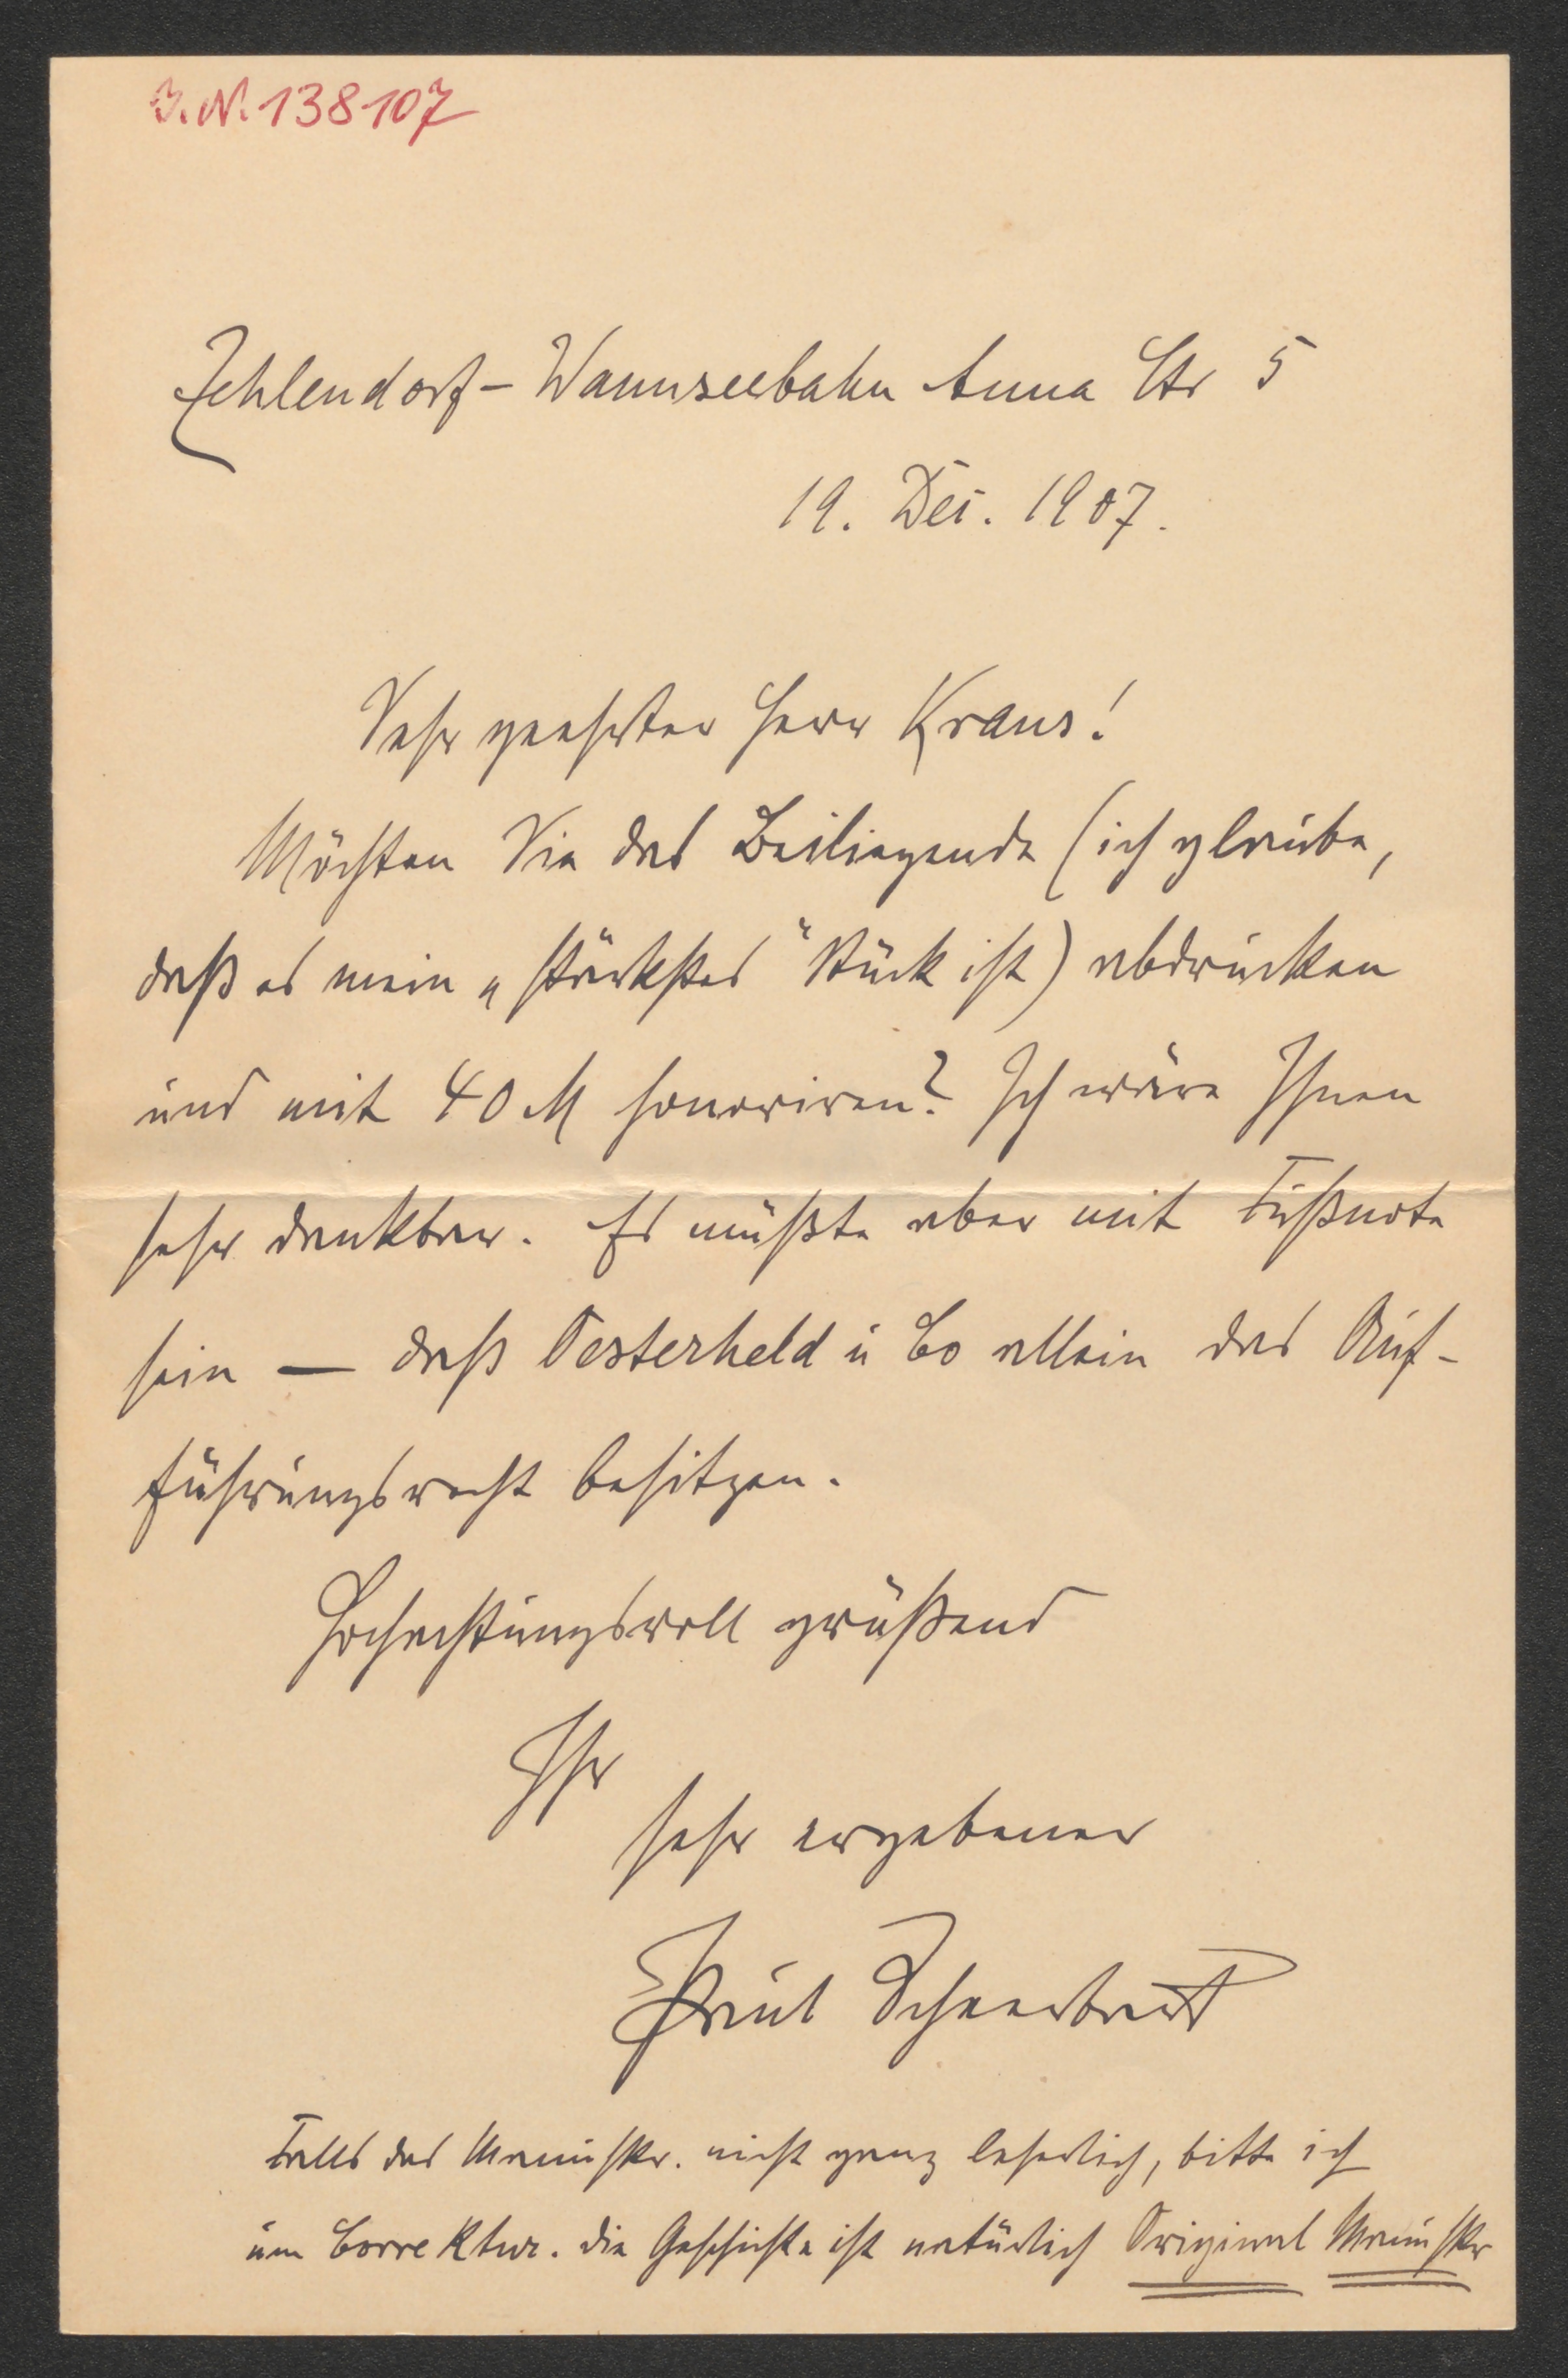 I.N. 138107
Zehlendorf-Wannseebahn Anna Str 5
19. Dez. 1907.
Sehr geehrter Herr Kraus!
Möchten Sie das Beiliegende (ich glaube,
daß es mein „stärkstes" Stück ist) abdrucken
und mit 40 M honoriren? Ich wäre Ihnen
sehr dankbar. Es müßte aber mit Fußnote
sein — daß Oesterheld u Co allein das Auf-
führungsrecht besitzen.
Hochachtungsvoll grüßend
Ihr
sehr ergebener
Paul Scheerbart
Falls das Manuskr. nicht ganz leserlich, bitte ich
um Correktur. Die Geschichte ist natürlich Original Manuskr